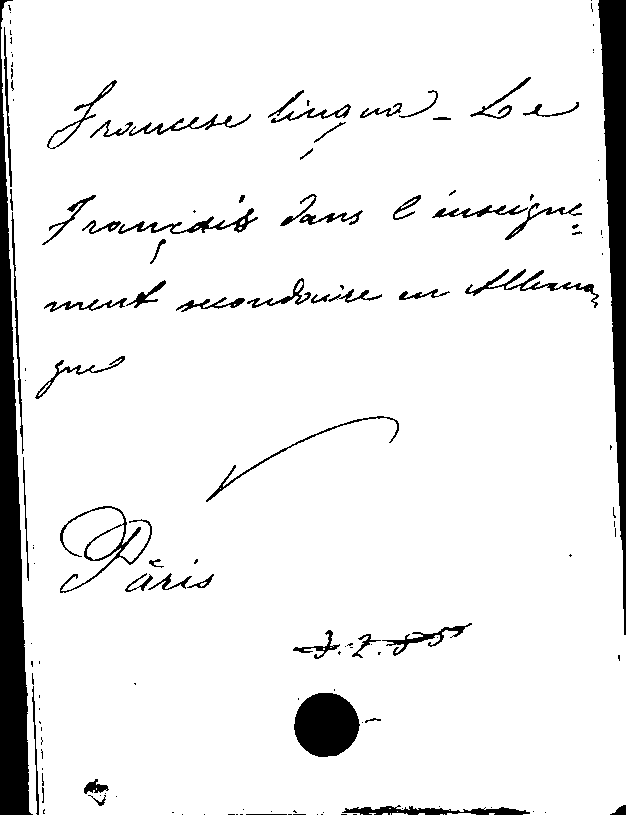 Francese lingua - Le
Français dans l'enseigne=
ment secondaire en Allema=
gne
Pâris
3.2.85